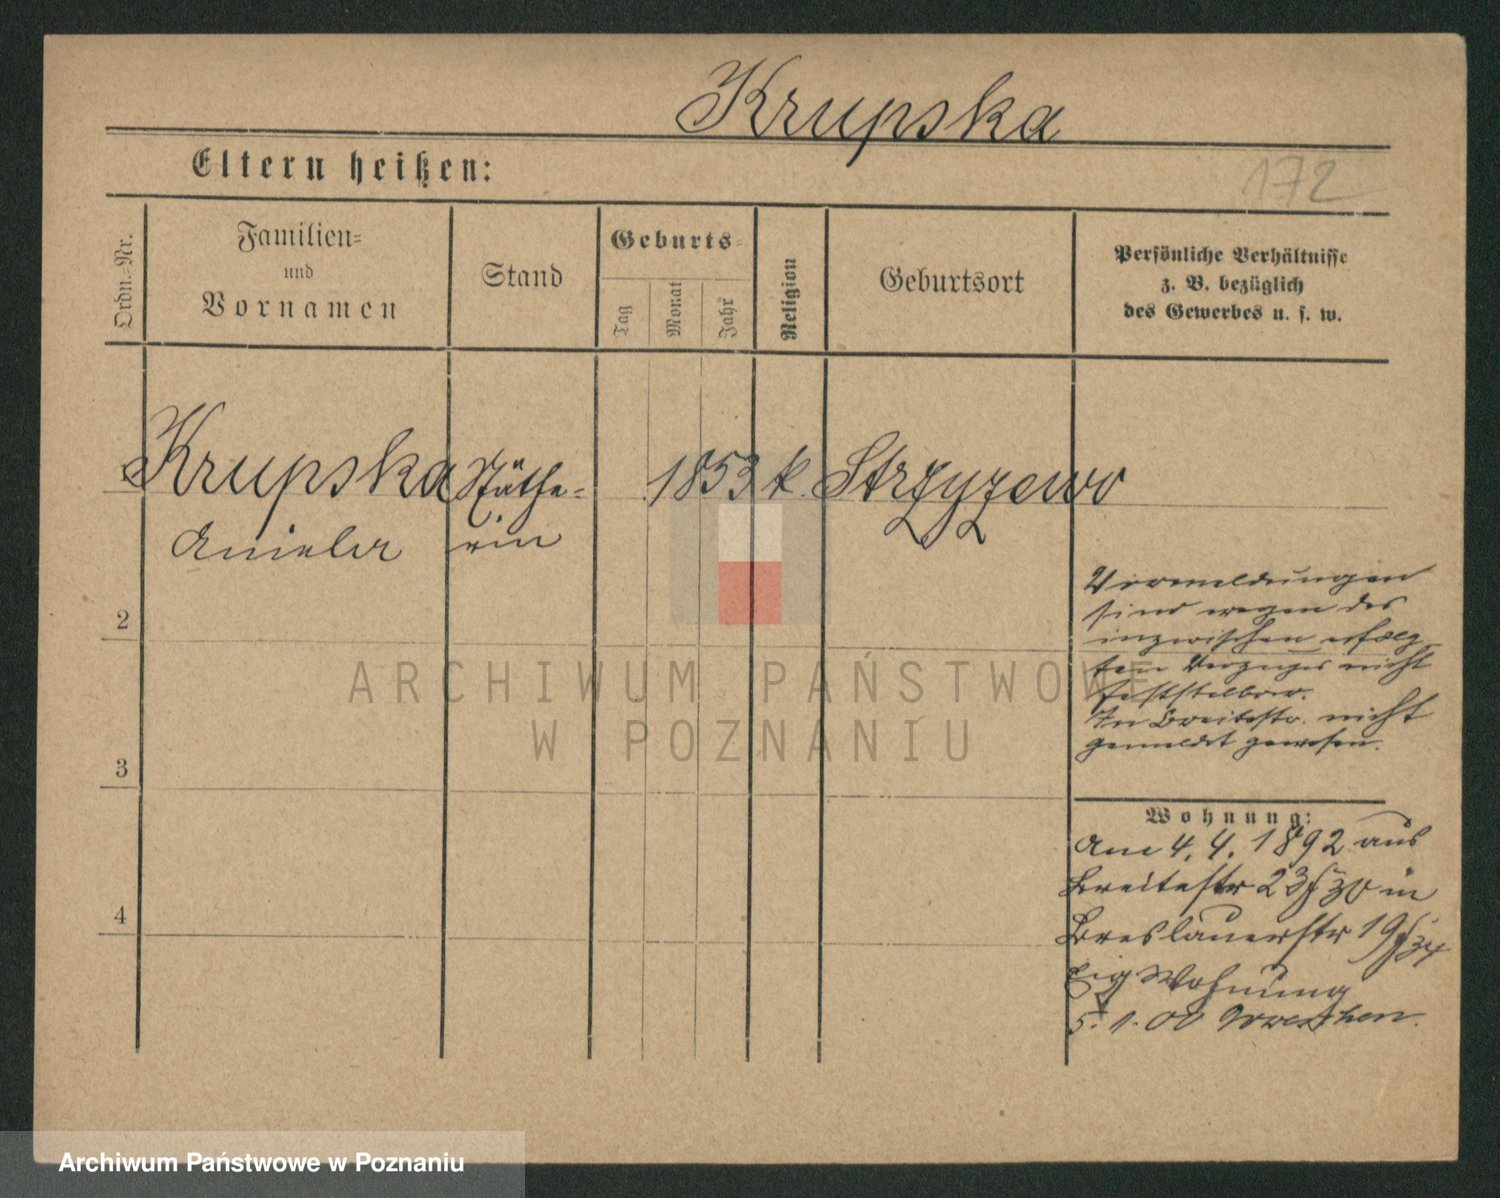 Krupska
Eltern heißen:
172
Ordn.-Nr.
Familien-
und
Vornamen
Stand
Geburts-
Tag
Monat
Jahr
Religion
Geburtsort
Persönliche Verhältnisse
z. B. bezüglich
des Gewerbes u. s. w.
Krupska Näthe- 1853 k. Strzyzewo
Aniela rin
2
Vormeldungen
sind wegen des
inzwischen erfolg-
ten Verzuges nicht
feststellbar.
In Breitestr. nicht
gemeldet gewesen.
3
4
Wohnung:
Am 4. 4. 1892 aus
Breitestr 23 in
Breslauerstr 19
Eig Wohnung
5. 1. 00 Wreschen.
ARCHIWUM PAŃSTWOWE
W POZNANIU
Archiwum Państwowe w Poznaniu